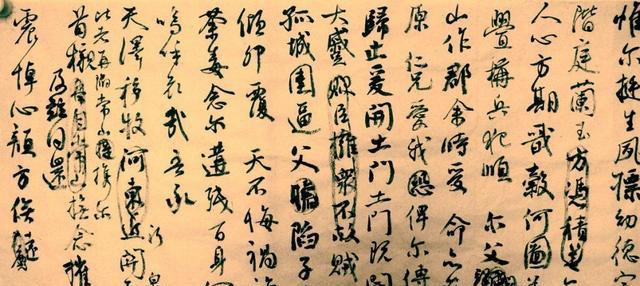 惟尔挺生夙標幼德
階庭蘭玉方憑積善
人心方期戩穀何圖
釁稱兵犯順尔父
山作郡余時受命亦
原仁兄愛我恐俾尔傳
歸止爰開土門土門既開
大蹙賊臣擁衆不救賊
孤城圍逼父陷子
傾卵覆天不悔禍
荼毒念尔遘殘百身何
嗚呼哀哉吾承
天澤移牧河東近河
泉
比者再陷常山攜尔
首櫬撫念摧
及茲同還
震悼心顏方俟遠